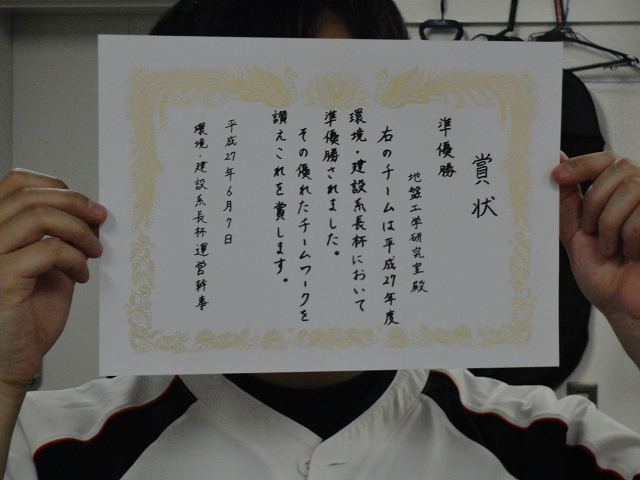 賞状
準優勝
地盤工学研究室殿
右のチームは平成27年度
環境・建設系長杯において
準優勝されました。
その優れたチームワークを
讃えこれを賞します。
平成27年6月7日
環境・建設系長杯運営幹事